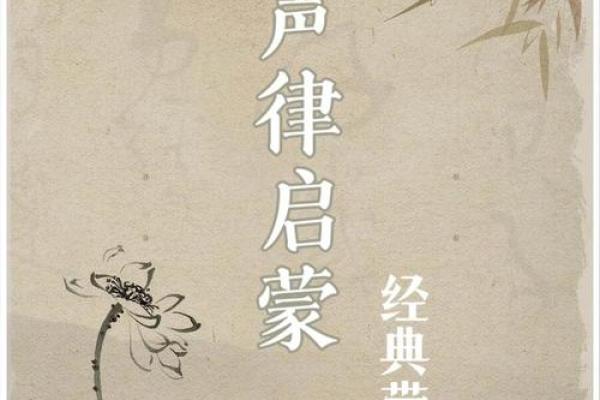 声律启蒙
经典